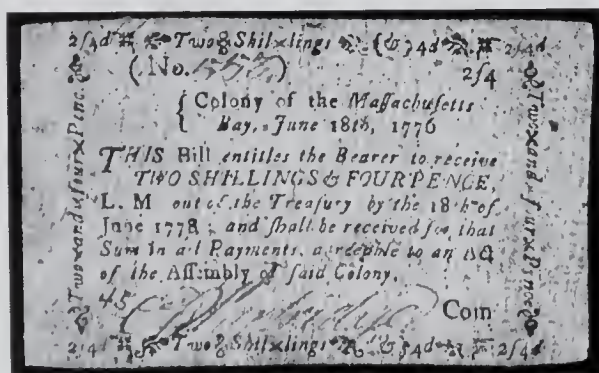 2ſ4d Two & Shil×lings {&}4d 2ſ4d
(No. ) 2ſ4
{ Colony of the Maſſachuſetts
Bay, June 18th, 1776
THIS Bill entitles the Bearer to receive
TWO SHILLINGS & FOURPENCE,
L. M out of the Treaſury by the 18th of
June 1778 ; and ſhall be received for that
Sum in all Payments, agreeable to an Act
of the Aſſembly of ſaid Colony.
Com
2ſ4d Two & Shil×lings &}4d 2ſ4d
Two×and×four×Penc.
Two×and×four×Pence